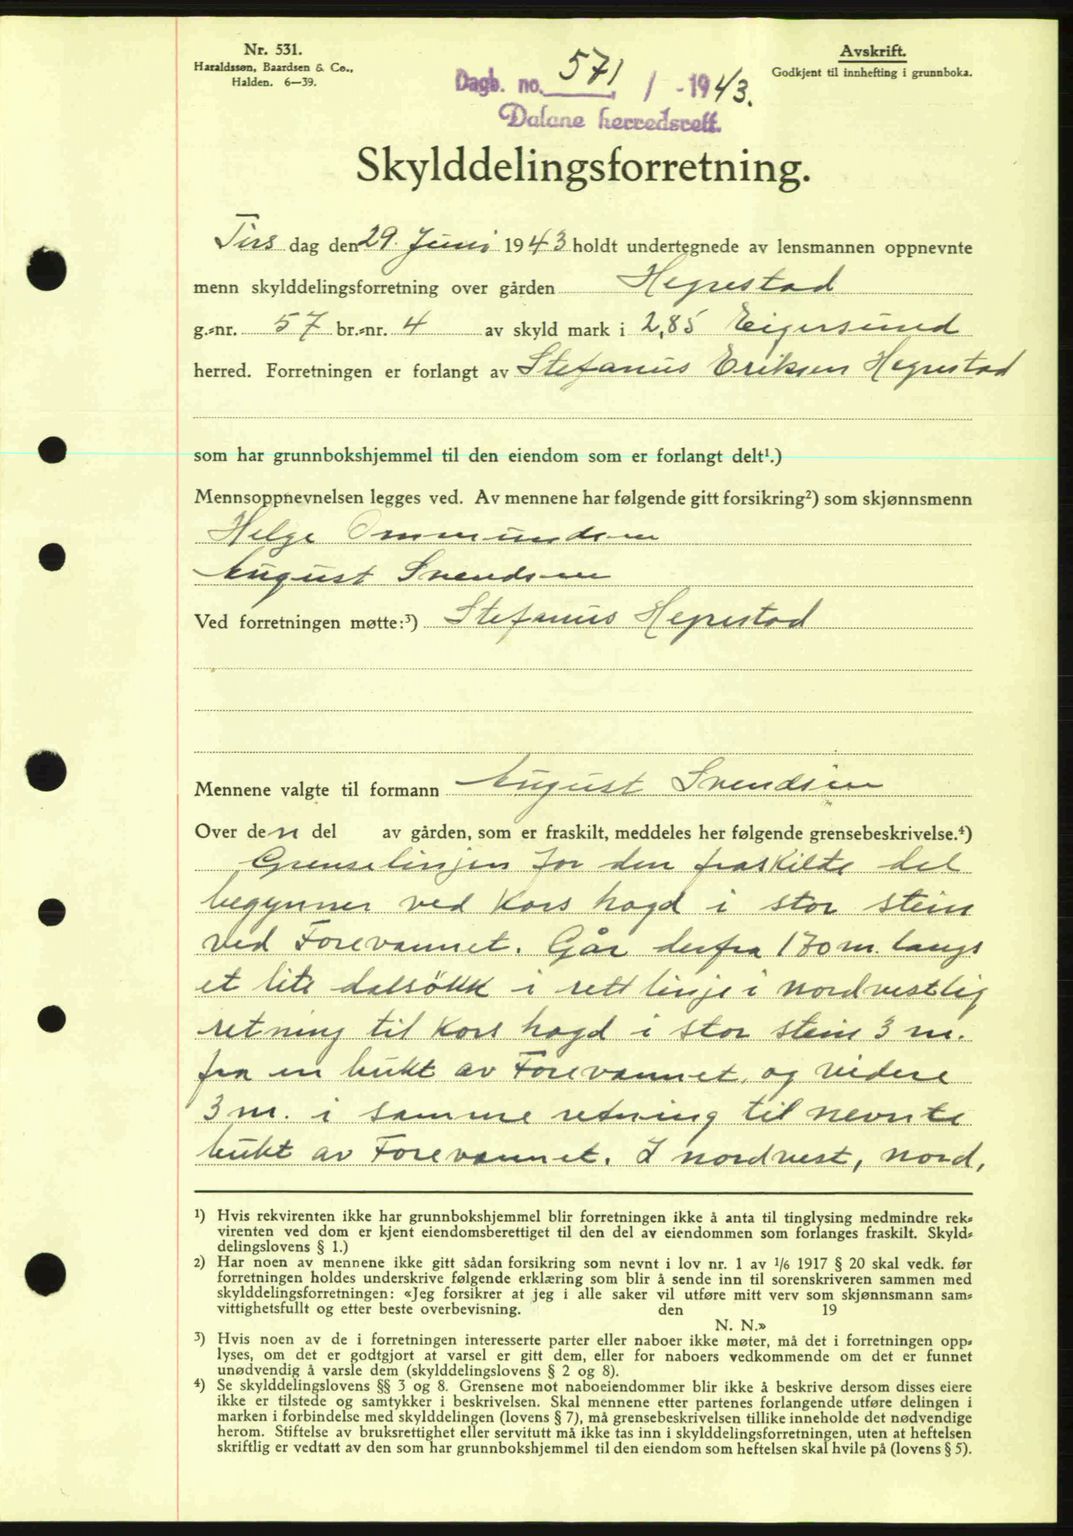 Nr. 531.
Haraldssøn, Baardsen & Co.,
Halden. 6—39.
Avskrift.
Godkjent til innhefting i grunnboka.
Dagb. no. 571 / - 1943.
Dalane herredsrett.
Skylddelingsforretning.
Tirs dag den 29. Juni 1943 holdt undertegnede av lensmannen oppnevnte
menn skylddelingsforretning over gården Hegrestad
g.-nr. 57 br.-nr. 4 av skyld mark i 2,85 Eigersund
herred. Forretningen er forlangt av Stefanus Eriksen Hegrestad
som har grunnbokshjemmel til den eiendom som er forlangt delt¹.)
Mennsoppnevnelsen legges ved. Av mennene har følgende gitt forsikring²) som skjønnsmenn
Helge Ommundsen
August Svendsen
Ved forretningen møtte:³) Stefanus Hegrestad
Mennene valgte til formann August Svendsen
Over den del av gården, som er fraskilt, meddeles her følgende grensebeskrivelse.⁴)
Grenselinjen for den fraskilte del
begynner ved Kors hogd i stor stein
ved Forevannet. Går derfra 170 m. langs
et lite dalsökk i rett linje i nordvestlig
retning til Kors hogd i stor stein 3 m.
fra en bukt av Forevannet, og videre
3 m. i samme retning til nevnte
bukt av Forevannet. I nordvest, nord,
¹) Hvis rekvirenten ikke har grunnbokshjemmel blir forretningen ikke å anta til tinglysing medmindre rek-
virenten ved dom er kjent eiendomsberettiget til den del av eiendommen som forlanges fraskilt. Skyld-
delingslovens § 1.)
²) Har noen av mennene ikke gitt sådan forsikring som nevnt i lov nr. 1 av 1/6 1917 § 20 skal vedk. før
forretningen holdes underskrive følgende erklæring som blir å sende inn til sorenskriveren sammen med
skylddelingsforretningen: «Jeg forsikrer at jeg i alle saker vil utføre mitt verv som skjønnsmann sam-
vittighetsfullt og etter beste overbevisning. den 19
N. N.»
³) Hvis noen av de i forretningen interesserte parter eller naboer ikke møter, må det i forretningen opp-
lyses, om det er godtgjort at varsel er gitt dem, eller for naboers vedkommende om det er funnet
unødvendig å varsle dem (skylddelingslovens § 2 og 8).
⁴) Se skylddelingslovens §§ 3 og 8. Grensene mot naboeiendommer blir ikke å beskrive dersom disses eiere
ikke er tilstede og samtykker i beskrivelsen. Skal mennene etter partenes forlangende utføre delingen i
marken i forbindelse med skylddelingen (lovens § 7), må grensebeskrivelsen tillike inneholde det nødvendige
herom. Stiftelse av bruksrettighet eller servitutt må ikke tas inn i skylddelingsforretningen, uten at heftelsen
skriftlig er vedtatt av den som har grunnbokshjemmel til den eiendom som heftelsen skal hvile på (lovens § 5).